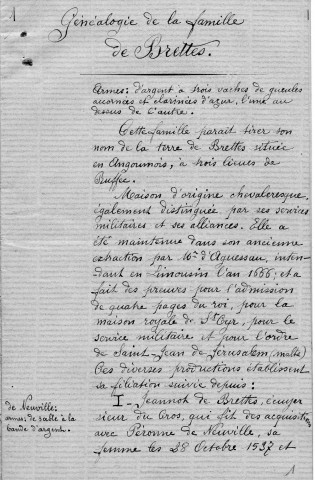 1
Généalogie de la famille
de Brettes.
Armes: d'argent à trois vaches de gueules
accornées et clarinées d'azur, l'une au
dessus de l'autre.
Cette famille parait tirer son
nom de la terre de Brettes située
en Angoumois, à trois lieues de
Ruffec.
Maison d'origine chevaleresque,
également distinguée par ses services
militaires et ses alliances. Elle a
été maintenue dans son ancienne
extraction par Mr d'Aguessau, inten-
dant en Limousin l'an 1666; et a
fait des preuves pour l'admission
de quatre pages du roi, pour la
maison royale de St Cyr, pour le
service militaire et pour l'ordre
de Saint-Jean de Jerusalem, (malte)
Ces diverses productions etablissent
sa filiation suivie depuis:
I - Jeannot de Bretts, ecuyer
sieur du Cros, qui fit des acquisitions
avec Péronne de Neuville, sa
femme les 28 Octobre 1537 et
de Neuville:
armes: de sable à la
bande d'argent.
1